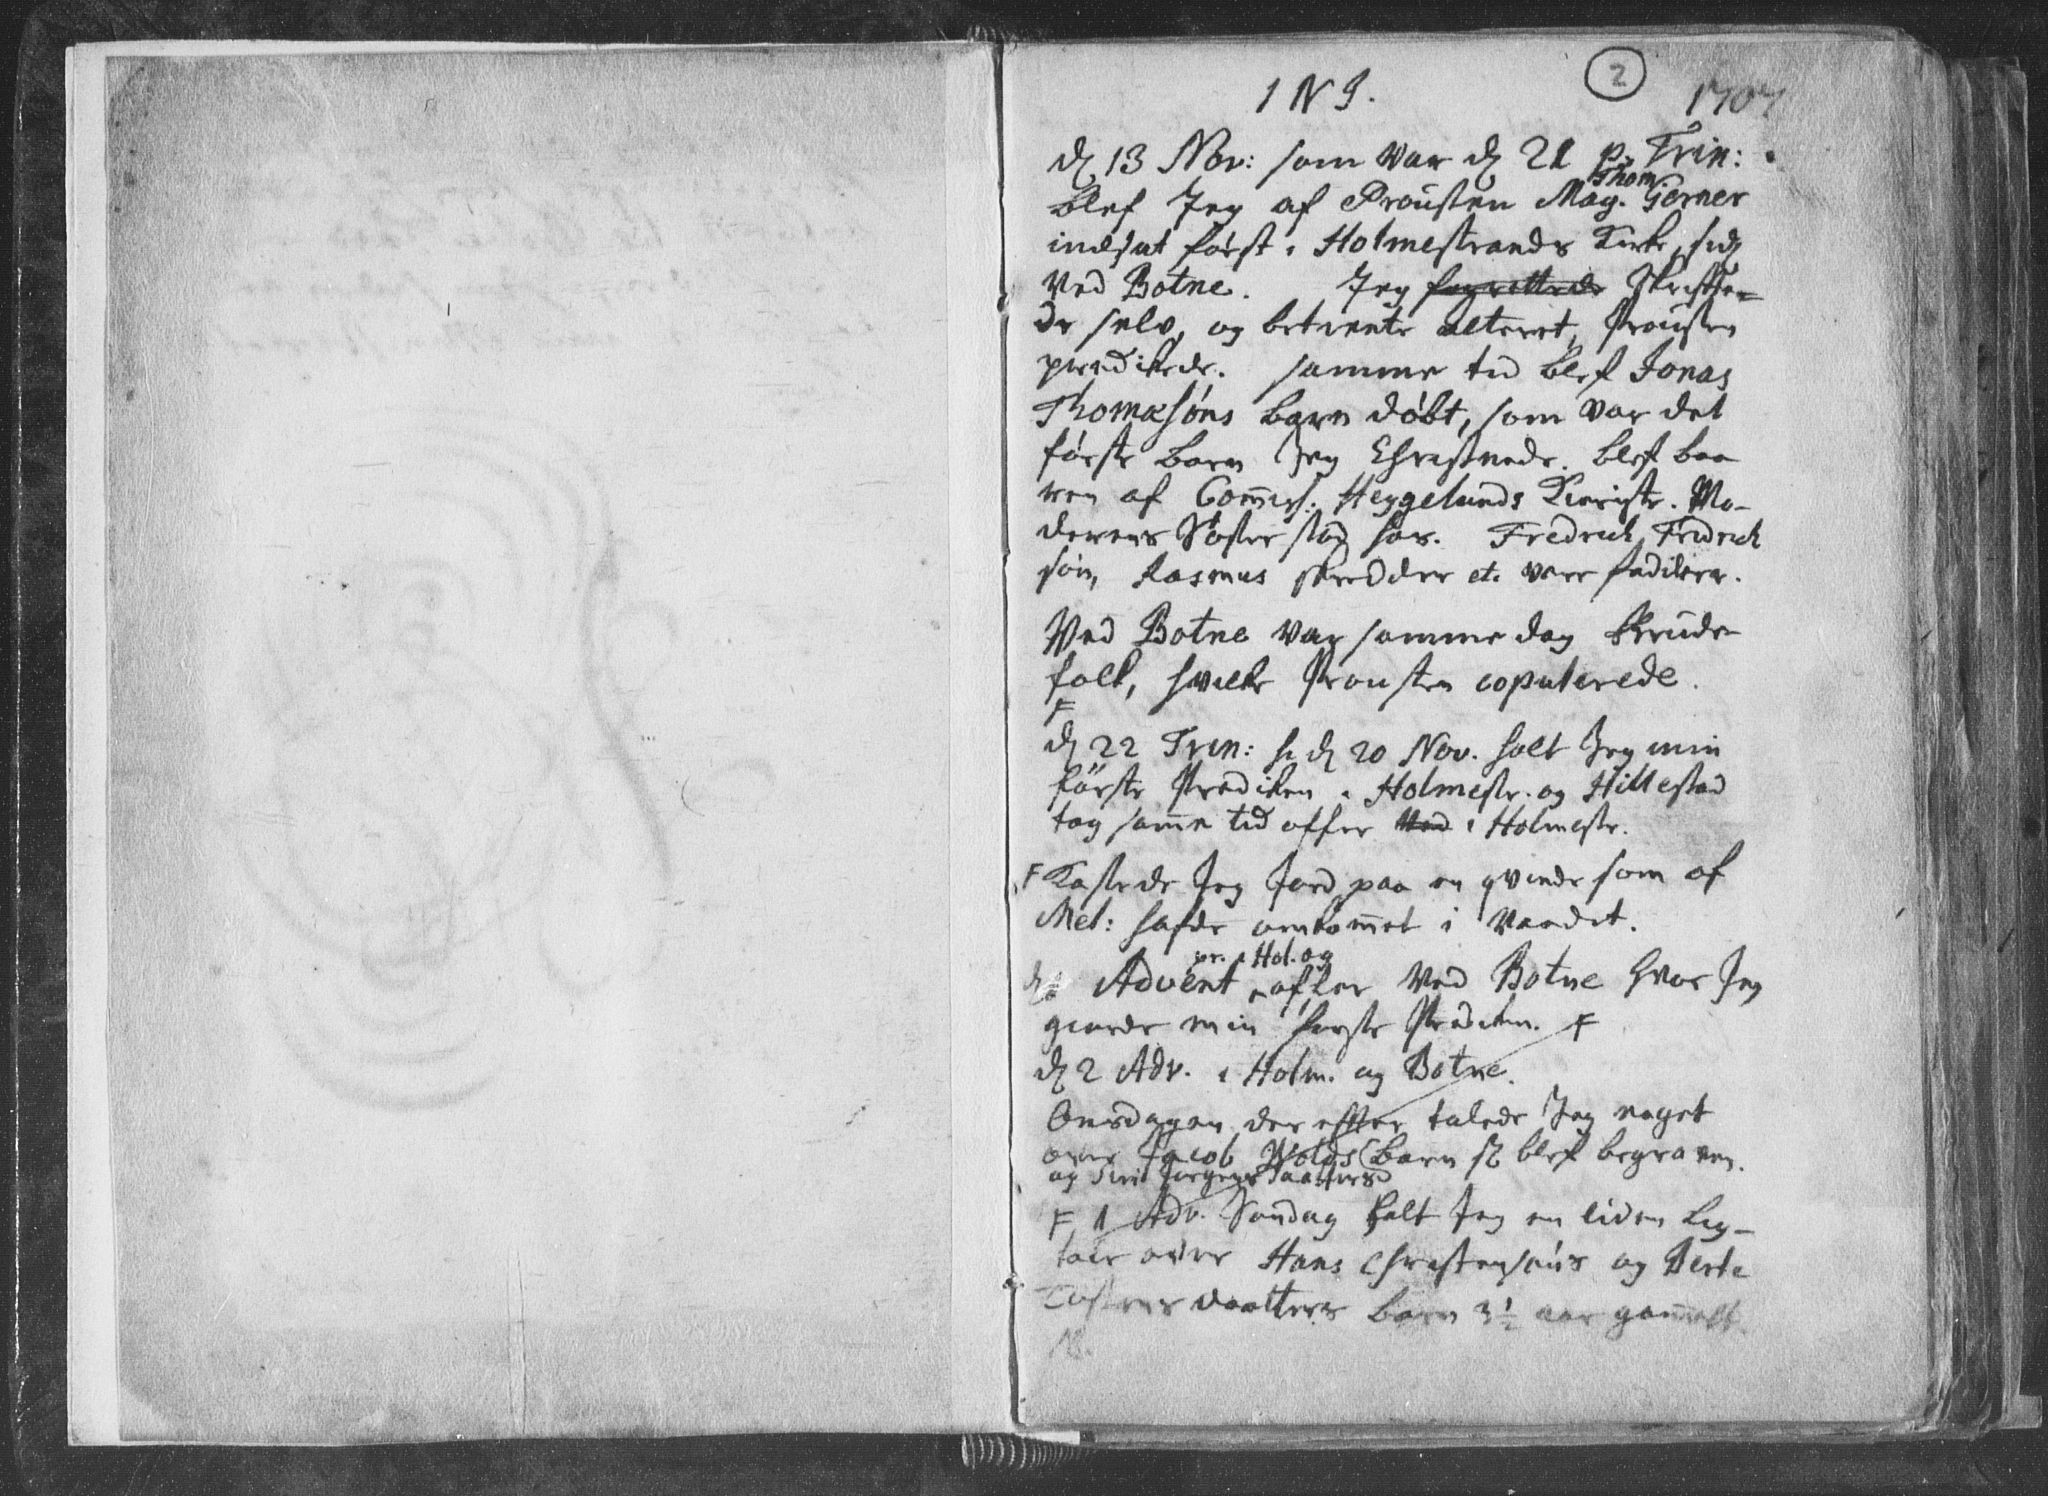 2
I N J. 1707
d 13 Nov: som var d 21 p. Trin:
Thom
blef Jeg af Prousten Mag. Gerner
indsat först i Holmestrands Kirke, sid
ved Botne. Jeg forrettede Skrifte=
de selv, og betiente alteret, Prousten
predikede. samme tid blef Jonas
Thomæsöns barn döbt, som var det
förste barn Jeg Christnede. blef baa
ren af Com̄iss: Heggelunds Kieriste. Mo-
derens Söster stod hos. Fredrich Fridrich
sön, Rasmus skredder etc. vare faddere.
Ved Botne var samme dag brude
folk, hvilke Prousten copulerede.
F
d 22 Trin: h: d 20 Nov. holt Jeg min
förste Prediken i Holmestr. og Hillestad
tog sam̄e tid offer ved i Holmestr.
F Kastede Jeg Jord paa en qvinde som af
Mel: hafde omkom̄et i Vandet.
pr. i Hol. og
d 1 Advent offer ved Botne hvor Jeg
giorde min förste Prediken. F
d 2 Adv. i Holm. og Botne.
Onsdagen der efter talede Jeg noget
over Jacob Wolds barn so blef begraven.
og Siri Jörgens Daatters
F 1 Adv. Söndag holt Jeg en liden Lig-
tale over Hans Christensöns og Berte
daatters barn 3 1/2 aar gam̄elt.